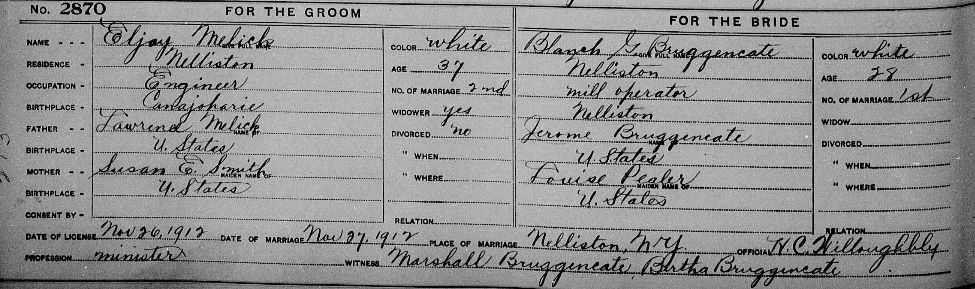 No. 2870 FOR THE GROOM FOR THE BRIDE
NAME Eljay Melick COLOR white Blanch G. Bruggencate COLOR white
RESIDENCE Nelliston AGE 37 Nelliston AGE 28
OCCUPATION Engineer NO. OF MARRIAGE 2nd mill operator NO. OF MARRIAGE 1st
BIRTHPLACE Canajoharie WIDOWER yes Nelliston WIDOW
FATHER Melick DIVORCED no Jerome Bruggencate DIVORCED
BIRTHPLACE U. States " WHEN U. States " WHEN
MOTHER Susan E. Smith MAIDEN NAME OF " WHERE Louise MAIDEN NAME OF " WHERE
BIRTHPLACE U. States U. States
CONSENT BY RELATION RELATION
DATE OF LICENSE Nov 26, 1912 DATE OF MARRIAGE Nov 27, 1912 PLACE OF MARRIAGE Nelliston, NY OFFICIAL H.C. Willoughbly
PROFESSION minister WITNESS Marshall Bruggencate Bertha Bruggencate